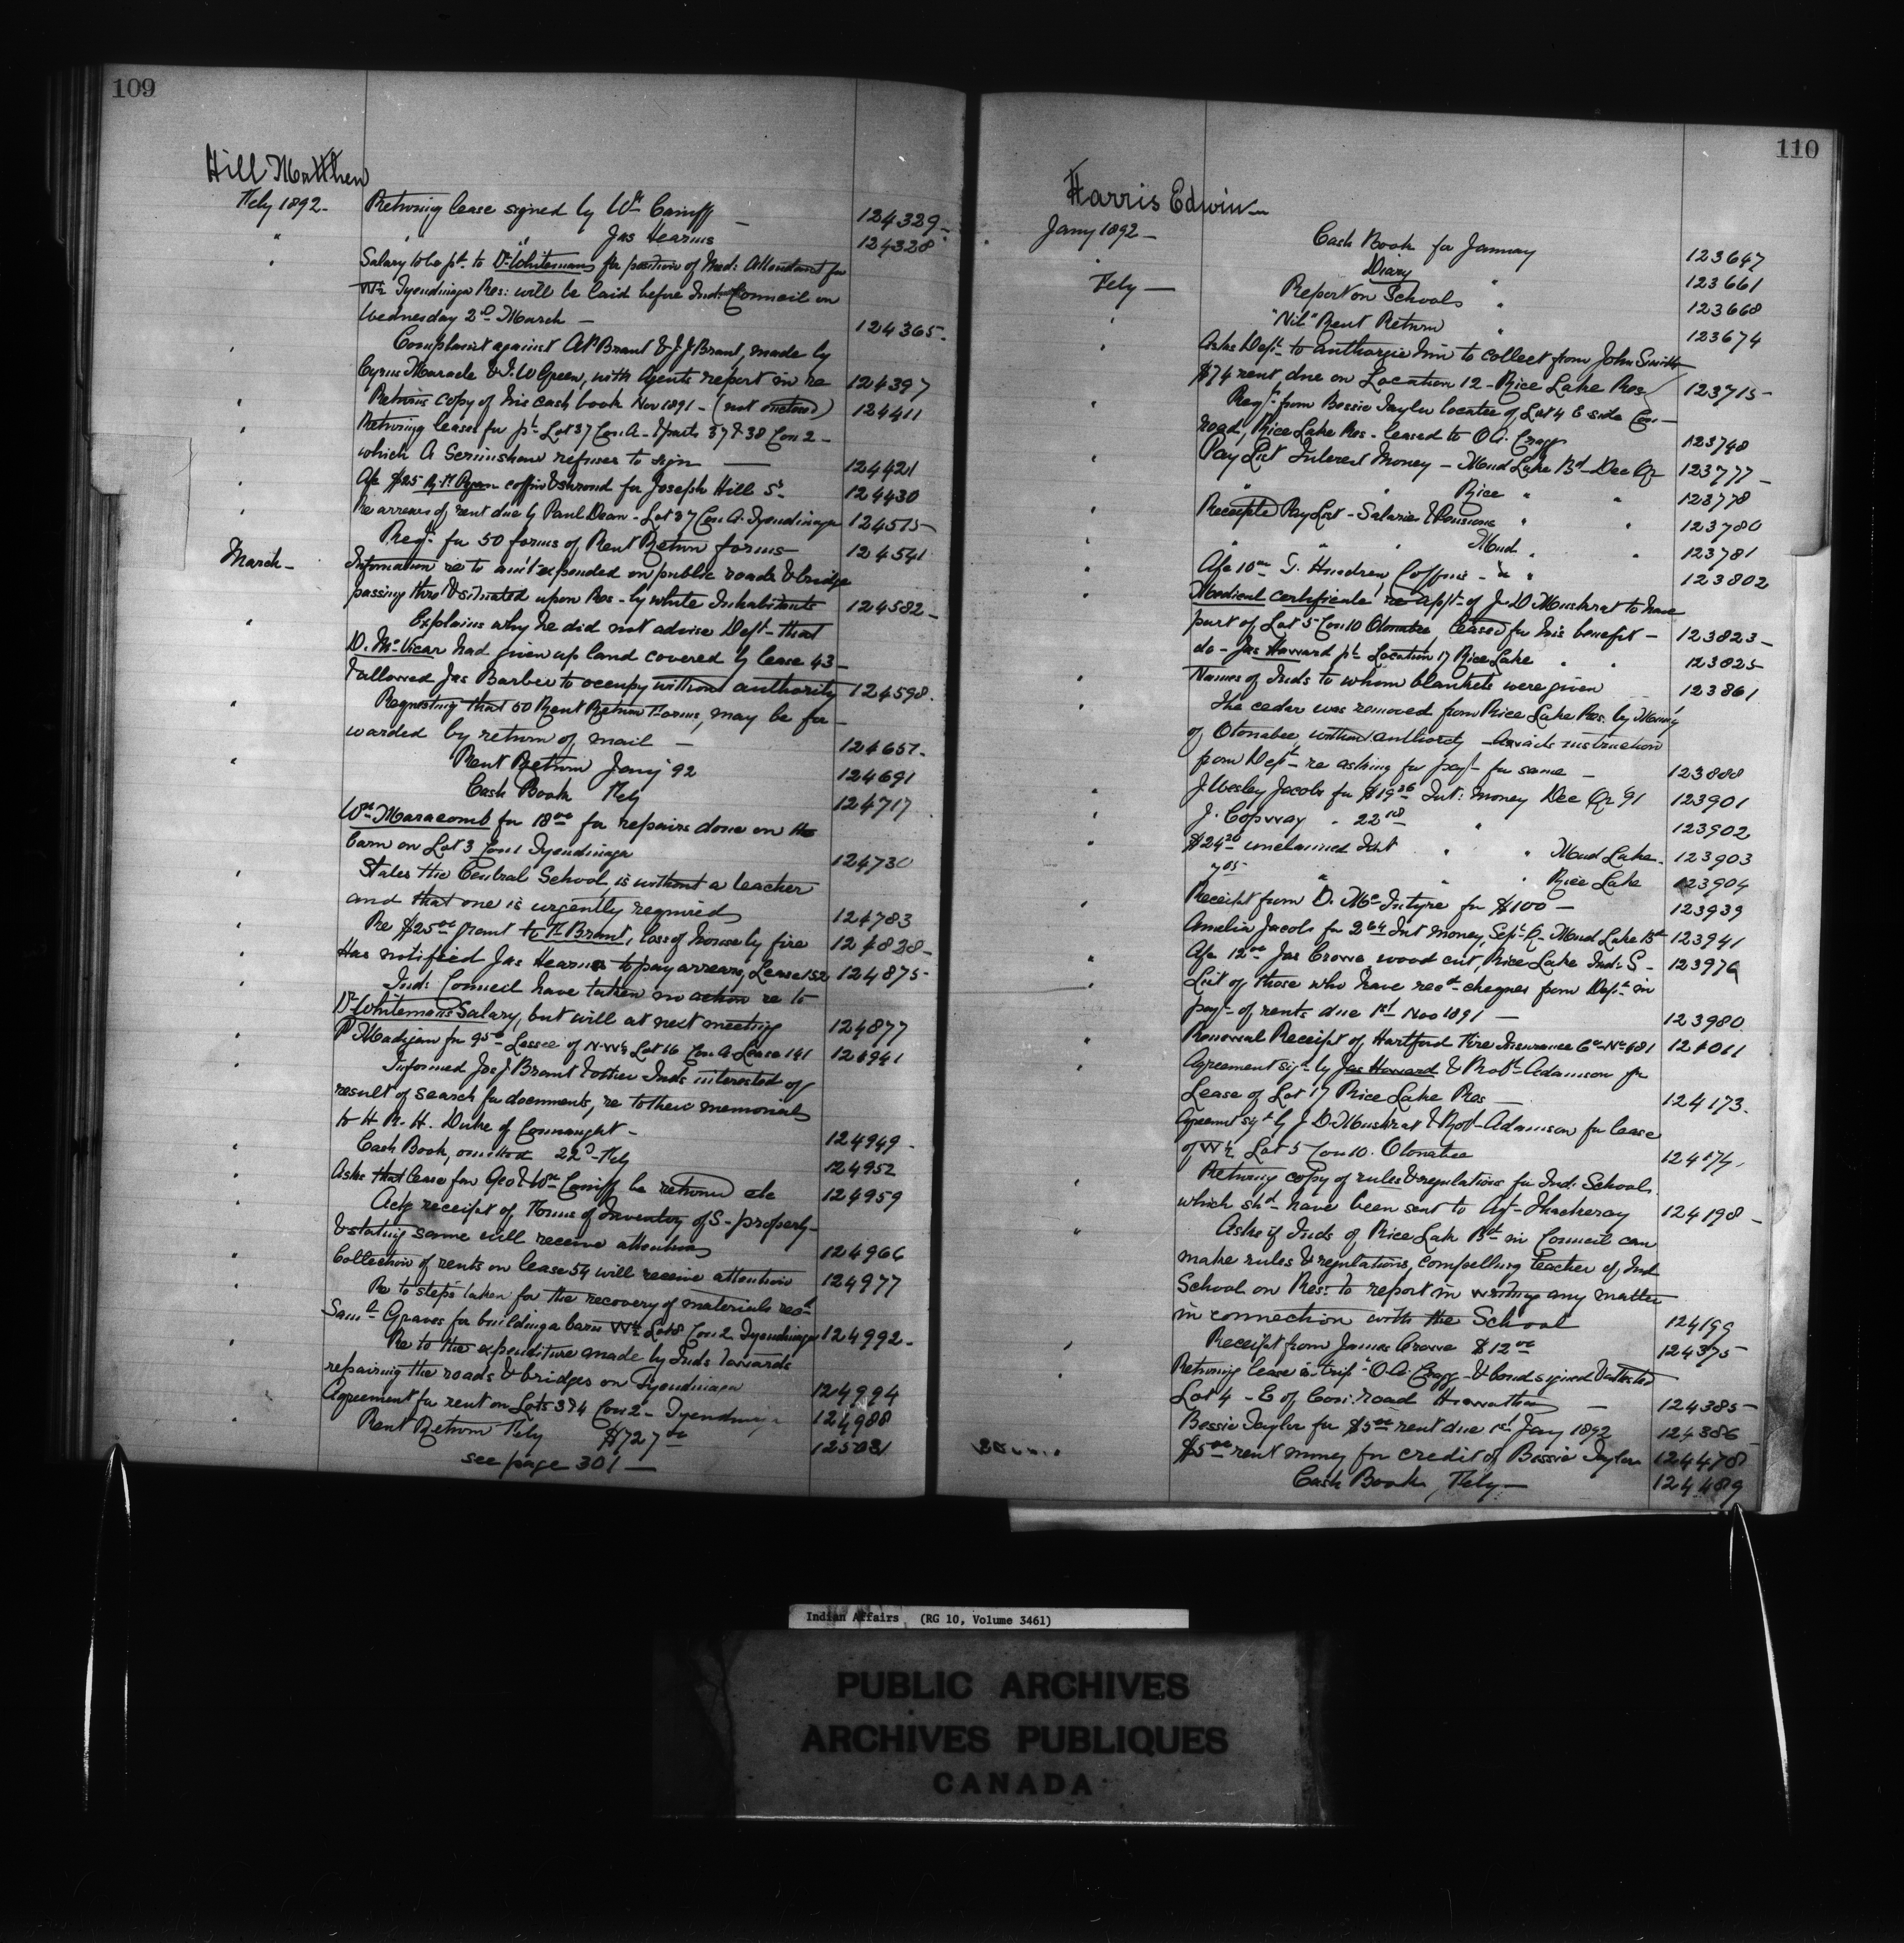 109
Hill Matthew
Feby 1892 - Returning lease signed by Wm Caniff - 124329 -
" " " Jas Hearns 124328
" Salary to be pd. to Dr Whiteman for position of Med: Attendant for
W½ Tyendinaga Res: will be laid before Ind: Council on
Wednesday 2d March - 124365 -
" Complaint against At Brant & J. J Brant, made by
Cyrus Maracle & J. W Green, with Agents report in re 124397
" Returns copy of his cash book Nov 1891 - (not entered) 124411
" Returning leases for pt. Lot 37 Con. A - & parts 37 & 38 Con 2 -
which A Scrimshaw refuses to sign — 124421
" A/c $25 Ryan coffin & shroud for Joseph Hill Sr. 124430
" Re arrears of rent due by Paul Dean - Lot 37 Con. A. Tyendinaga 124515
" Reqn. for 50 forms of Rent Return forms 124541
March - Information re to am't expended on public roads & bridge
passing thro & situated upon Res - by white Inhabitants 124582 -
" Explains why he did not advise Dept - that
D. McVicar had given up land covered by lease 43 -
& allowed Jas Barber to occupy without authority 124598.
" Requesting that 50 Rent Return Forms, may be for -
warded by return of mail - 124657 -
" Rent Return Jany '92 124691
Cash Book Feby 124717
Wm Maracomb for 18.00 for repairs done on the
barn on Lot 3 Con 1 Tyendinaga 124730
" States the Central School, is without a teacher
and that one is urgently required 124783
" Re $25.00 grant to Brant, loss of house by fire 124828 -
" Has notified Jas Hearns to pay arrears, Lease 152 124875 -
" Ind: Council have taken no action re to
Dr Whitemans Salary, but will at next meeting 124877
" P Madigan for 95 - Lessee of N.W¼ Lot 16 Con A. Lease 141 124941
" Informed Jos J Brant & other Inds interested of
result of search for documents, re to their memorial
to H. R. H. Duke of Connaught - 124949 -
" Cash Book, omitted 22d Feby 124952
" Asks that lease for Geo & Wm Caniff be returned etc 124959
" Ackg receipt of Forms of Inventory of S - property -
& stating same will receive attention 124966
" Collection of rents on lease 54 will receive attention 124977
" Re to steps taken for the recovery of materials recd.
Saml. Graves for building a barn W½ Lot 8 Con 2 Tyendinaga 124992 -
" Re to the expenditure made by Inds towards
repairing the roads & bridges on Tyendinaga 124994
Agreement for rent on Lots 3 & 4 Con 2 - Tyendinaga 124988
" Rent Return Feby $727.00 125031
see page 301 —
110
Harris Edwin
Jany 1892 - Cash Book for January 123647
" Diary " 123661
Feby — Report on Schools " 123668
" "Nil" Rent Return " 123674
" Asks Dept. to authorize him to collect from John Smith
$74 rent due on Location 12 - Rice Lake Res 123715 -
" Reqt. from Bessie Taylor locatee of Lot 4 E side Con -
road, Rice Lake Res - leased to O. A. Cragg 123748
" Pay List Interest Money - Mud Lake Bd - Dec Qr 123777 -
" " Rice " " 123778
" Receipts Pay List - Salaries & Pensions " " 123780
" " " Mud " " 123781
" A/c 10.00 T. Hendren, Coffins - " " 123802
" Medical certificate re appt. of J. D Muskrat to have
part of Lot 5 Con 10 Otonabee, leased for his benefit - 123823 -
do - Jas Howard pt. Location 17 Rice Lake " " 123825
" Names of Inds to whom blankets were given 123861
" The cedar was removed from Rice Lake Res. by
of Otonabee without authority - Awaits instruction
from Dept. re asking for payt. for same - 123888
" J. Wesley Jacobs for $19.26 Int: money Dec Qr '91 123901
" J. Copway " 22.18 " 123902
" $24.26 unclaimed Int " " Mud Lake - 123903
7.05 " " " Rice Lake 123904
" Receipt from D. McIntyre for $100 - 123939
Amelia Jacobs for 2.64 Int money, Sept. Qr - Mud Lake Bd 123941
" A/c 12.00 Jas Crowe wood cut, Rice Lake Ind: S - 123976
" List of those who have recd. cheques from Dept. in
payt. of rents due 1st Nov 1891 - 123980
" Renewal Receipt of Hartford Fire Insurance Co. No 481 124011
" Agreement sigd. by Jas Howard & Robt. Adamson for
Lease of Lot 17 Rice Lake Res - 124173.
Agreemt sigd. by J. D. Muskrat & Robt. Adamson for lease
of W½ Lot 5 Con 10. Otonabee 124174 -
" Returning copy of rules & regulations for Ind: Schools.
which shd. have been sent to Agt. Thackeray 124198 -
" Asks if Inds of Rice Lake Bd in Council can
make rules & regulations, compelling teacher of Ind
School on Res: to report in writing any matter
in connection with the School 124199
" Receipt from James Crowe $12.00 124375
" Returning lease in trip. O. A. Cragg - & bond signed & attested
Lot 4 - E of Con: road Hiawatha - 124385 -
Bessie Taylor for $5.00 rent due 1st Jany 1892 124386
$5.00 rent money for credit of Bessie Taylor 124478
Cash Book, Feby - 124489
Indian Affairs (RG 10, Volume 3461)
PUBLIC ARCHIVES
ARCHIVES PUBLIQUES
CANADA